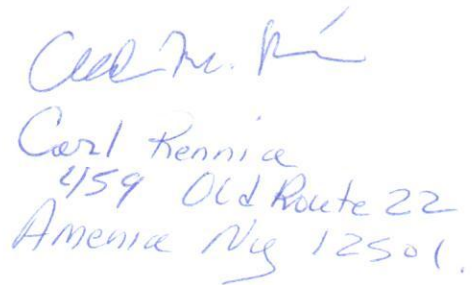 Carl Rennia
459 Old Route 22
Amenia Ny 12501.